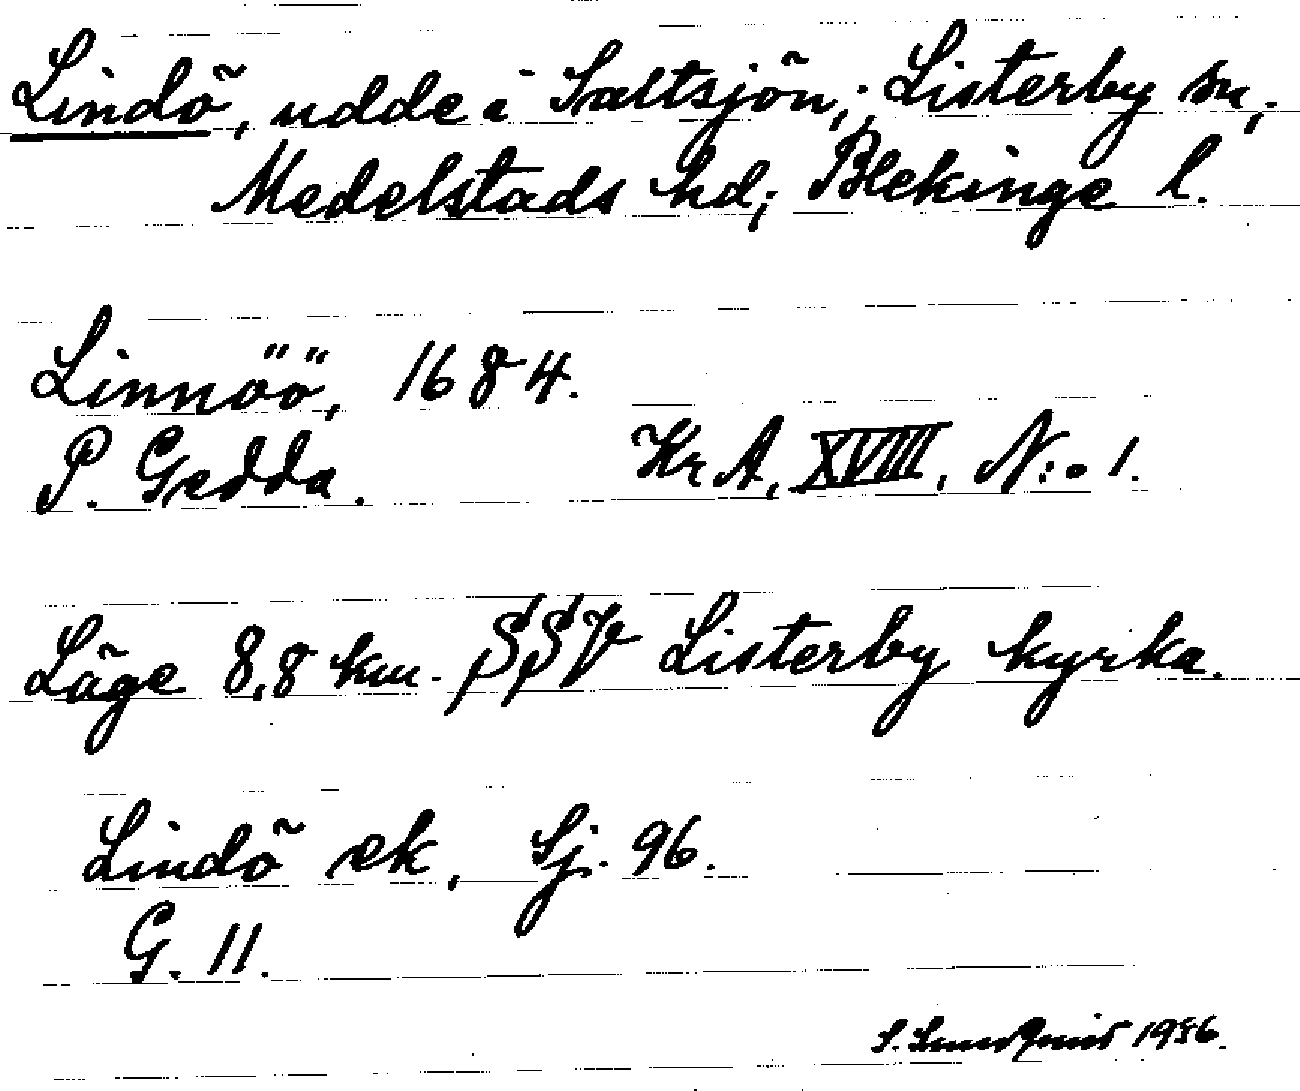 Lindö, udde i Saltsjön, Listerby sn,
Medelstads hd; Blekinge l.
Linnöö, 1684.
P. Gedda. Kr A, XVIII, N:o 1.
Läge 8,8 km. SSV Listerby kyrka.
Lindö ek, Sj. 96.
G. 11.
S. 1956.